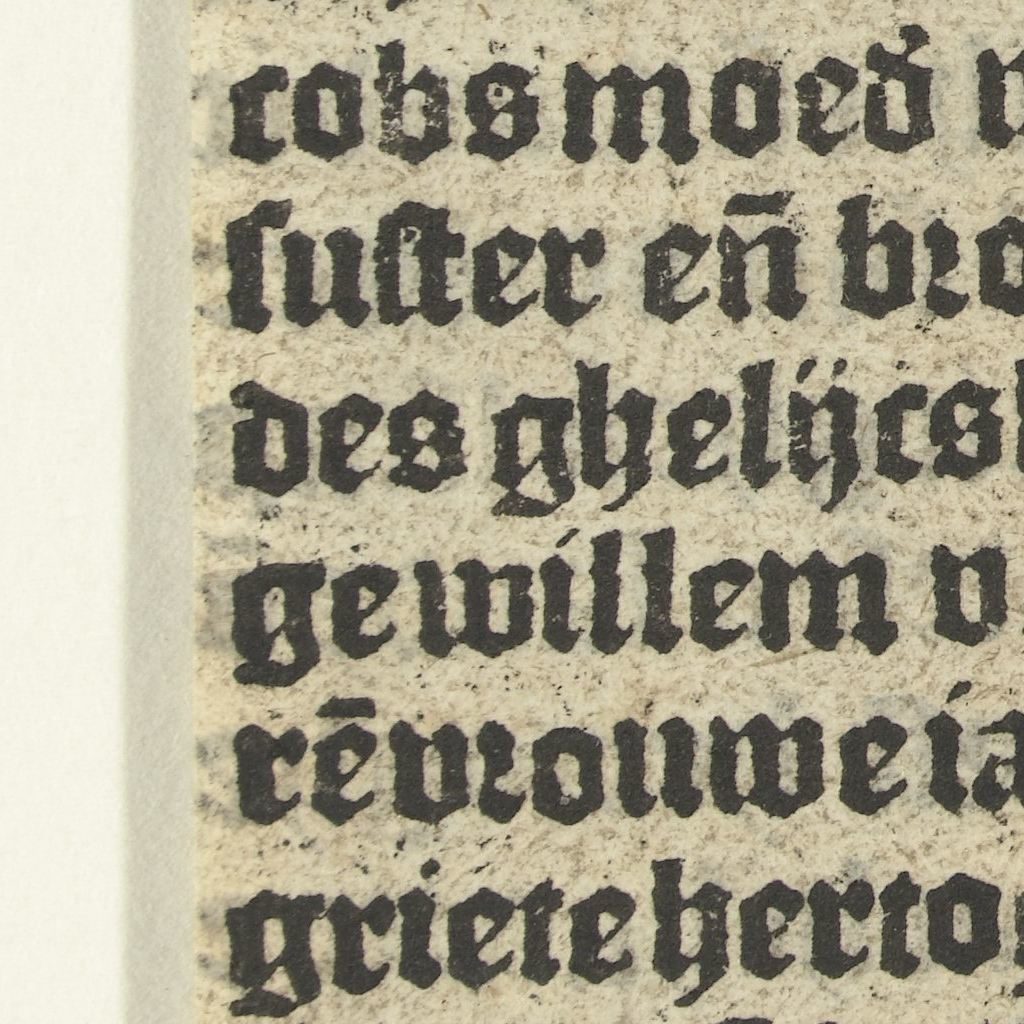 cobs moed̉
ſuſter en̄ bro
des ghelijcs
ge willem v
rē vrouwe ia
griete herto